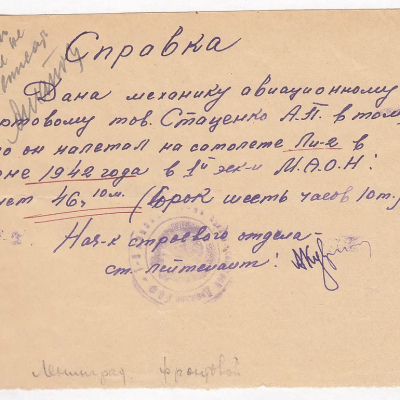 Справка
Дана механику авиационному
ртовому тов. Стаценко А.П. в том,
о он налетал на самолете Ли-2 в
не 1942 года в 1й эск-и М.А.О.Н:
46ч 10м. (Сорок шесть часов 10м.)
Нач-к строевого отдела-
ст. лейтенант:
Ленинград. фронтовой